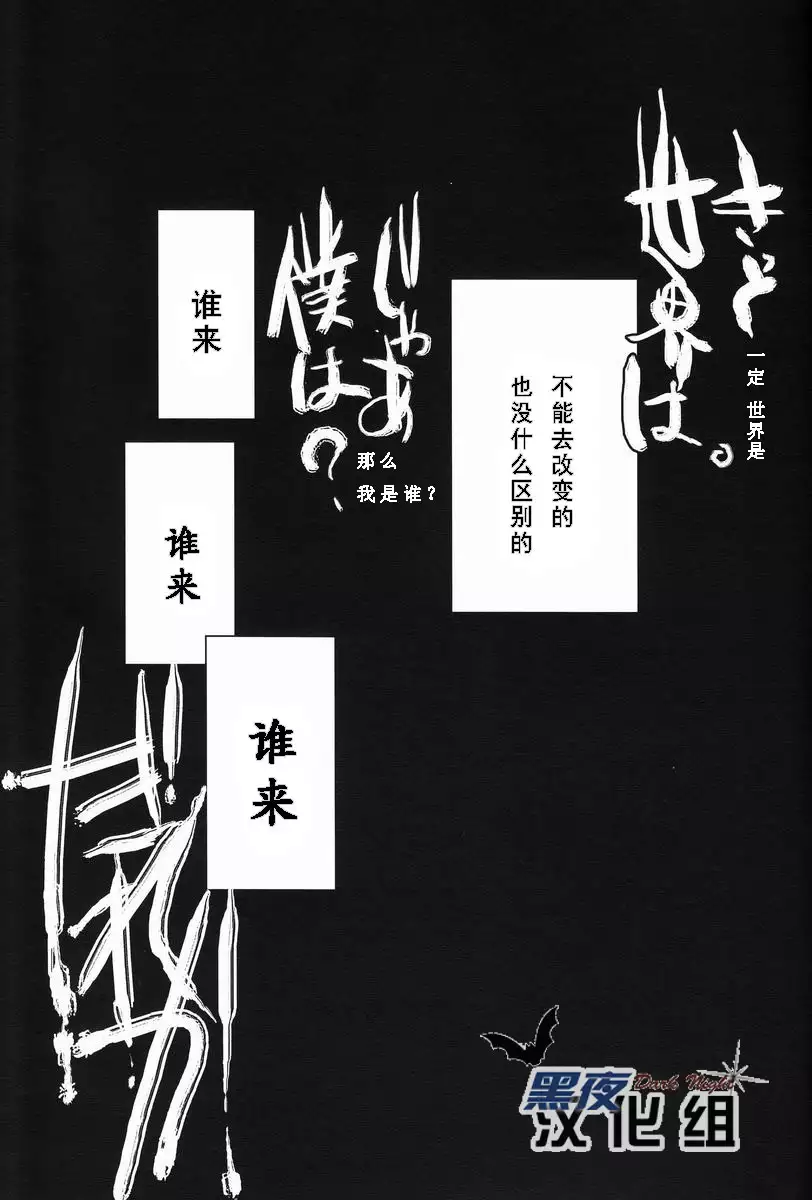 きっと
世界は。
一定 世界是
不能去改变的
也没什么区别的
じゃあ
僕は?
那么
我是谁?
谁来
谁来
谁来
だれか
Dark Night
黑夜
汉化组